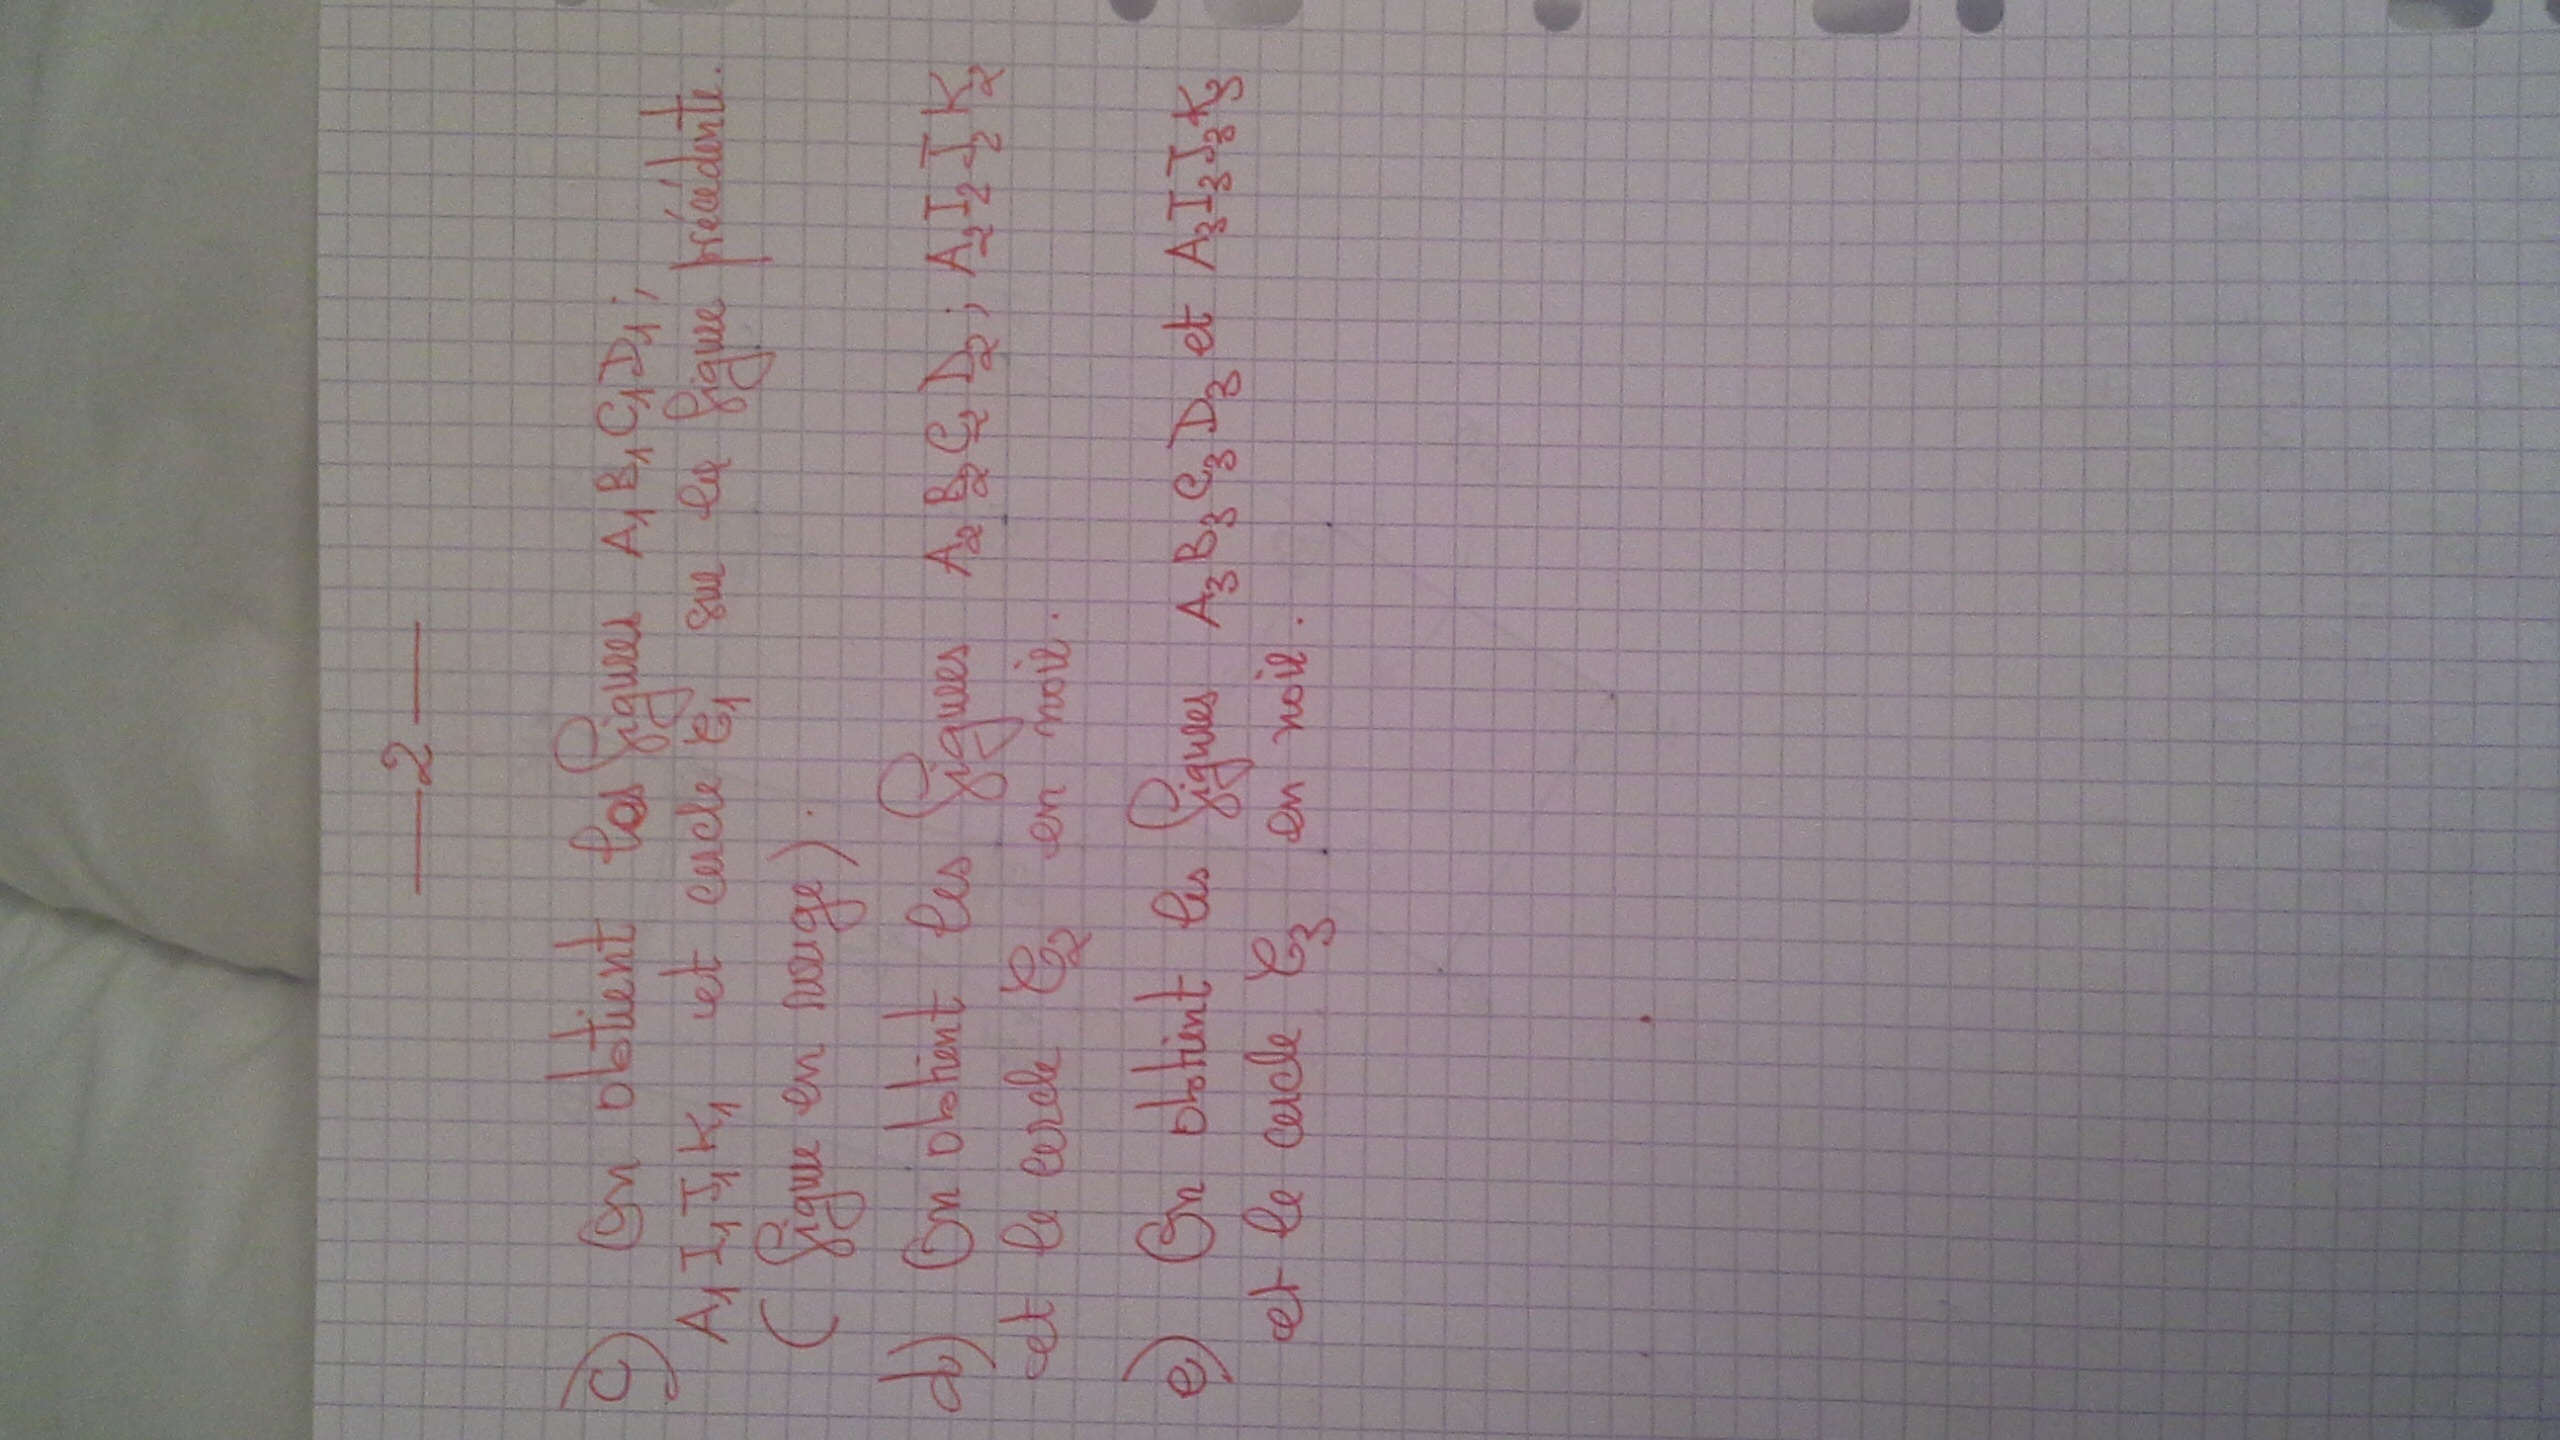 — 2 —
c) On obtient les figures A₁B₁C₁D₁;
A₁I₁J₁K₁ et cercle C₁ sur la figure précédente.
(figure en rouge).
d) On obtient les figures A₂B₂C₂D₂; A₂I₂J₂K₂
et le cercle C₂ en noir.
e) On obtient les figures A₃B₃C₃D₃ et A₃I₃J₃K₃
et le cercle C₃ en noir.